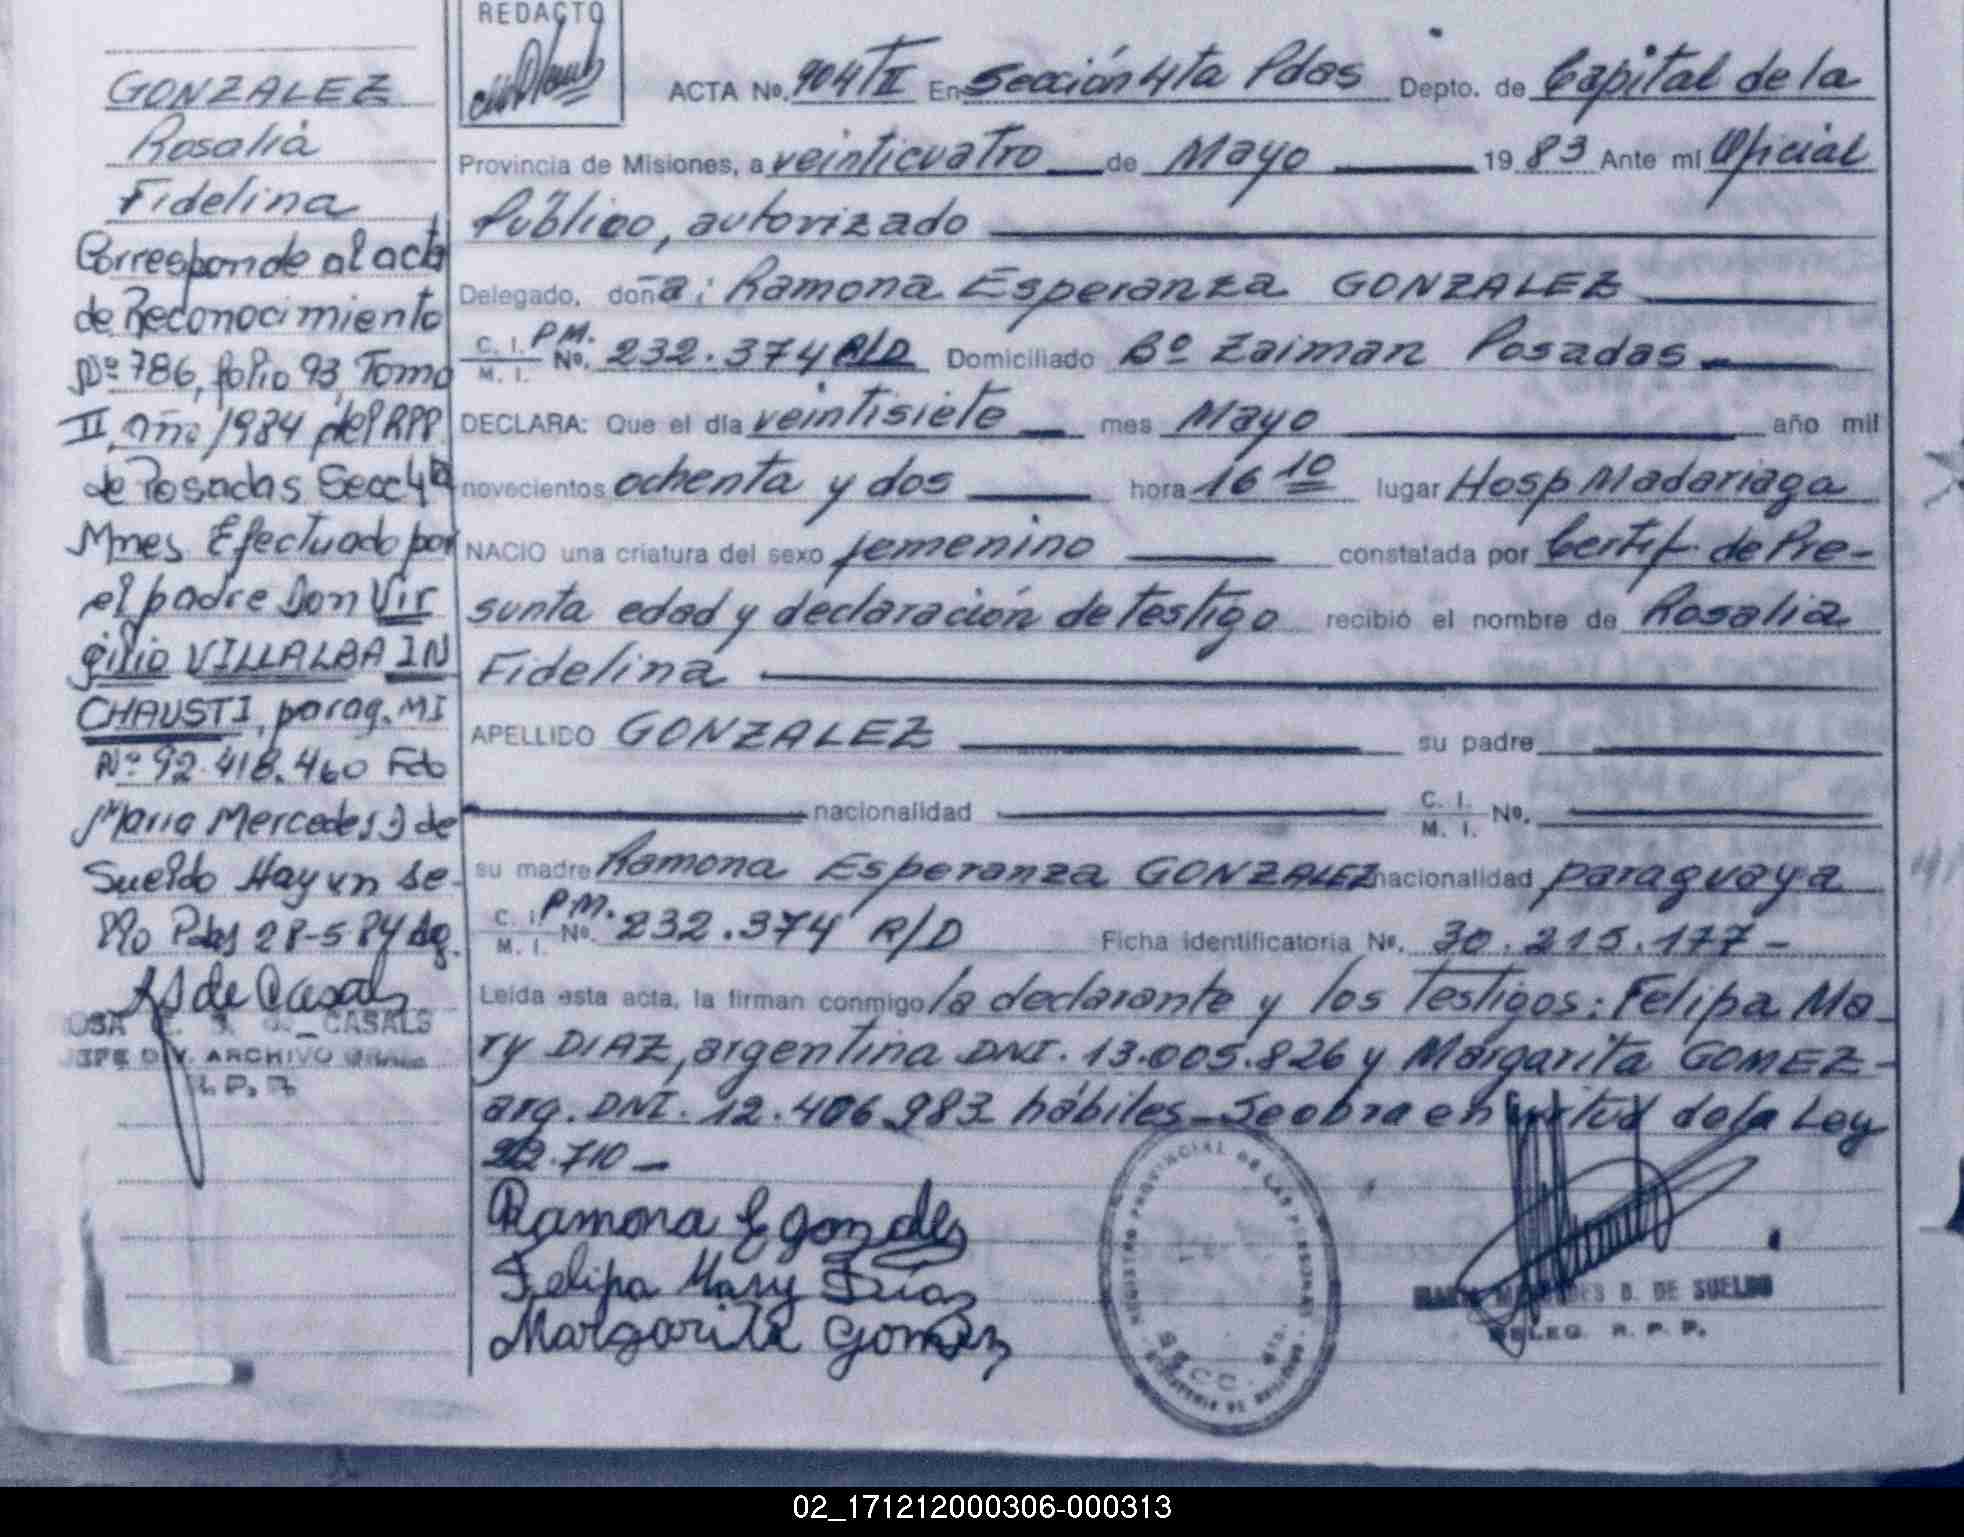 GONZALEZ
Rosalia
Fidelina
Corresponde al acta
de Reconocimiento
Nº 786, folio 93, Tomo
II, Año/1984 del RPP
de Posadas Secc 4ta
Mnes Efectuado por
el padre Don Vir
gilio VILLALBA IN
CHAUSTI, parag. MI
Nº 92.418.460 Fdo
Maria Mercedes D de
Sueldo Hay un se-
llo Pdas 28-5 84 Ag.
CASALS
ARCHIVO
REDACTO
ACTA No. 904/II En Sección 4ta Pdas Depto. de Capital de la
Provincia de Misiones, a veinticuatro de Mayo 1983 Ante mí Oficial
Público, autorizado
Delegado, doña: Ramona Esperanza GONZALEZ
C. I. P.M.
M. I. No. 232.374 R/D Domiciliado Bº Zaiman Posadas
DECLARA: Que el día veintisiete mes Mayo año mil
novecientos ochenta y dos hora 16 10 lugar Hosp Madariaga
NACIO una criatura del sexo femenino constatada por Certif. de Pre-
sunta edad y declaración de testigo recibió el nombre de Rosalia
Fidelina
APELLIDO GONZALEZ su padre
nacionalidad C. I.
M. I. No.
su madre Ramona Esperanza GONZALEZ nacionalidad paraguaya
C. I. P.M.
M. I. No. 232.374 R/D Ficha identificatoria No. 30.215.177-
Leída esta acta, la firman conmigo la declarante y los testigos: Felipa Ma-
ry DIAZ, argentina DNI. 13.005.826 y Margarita GOMEZ-
arg. DNI. 12.406.983 hábiles-Se obra en virtud de la Ley
22.710-
Ramona E gonzalez
Felipa Mary Díaz
Margarita Gomez
REGISTRO PROVINCIAL DE LAS PERSONAS
D. DE SUELDO
DELEG. R. P. P.
02_171212000306-000313